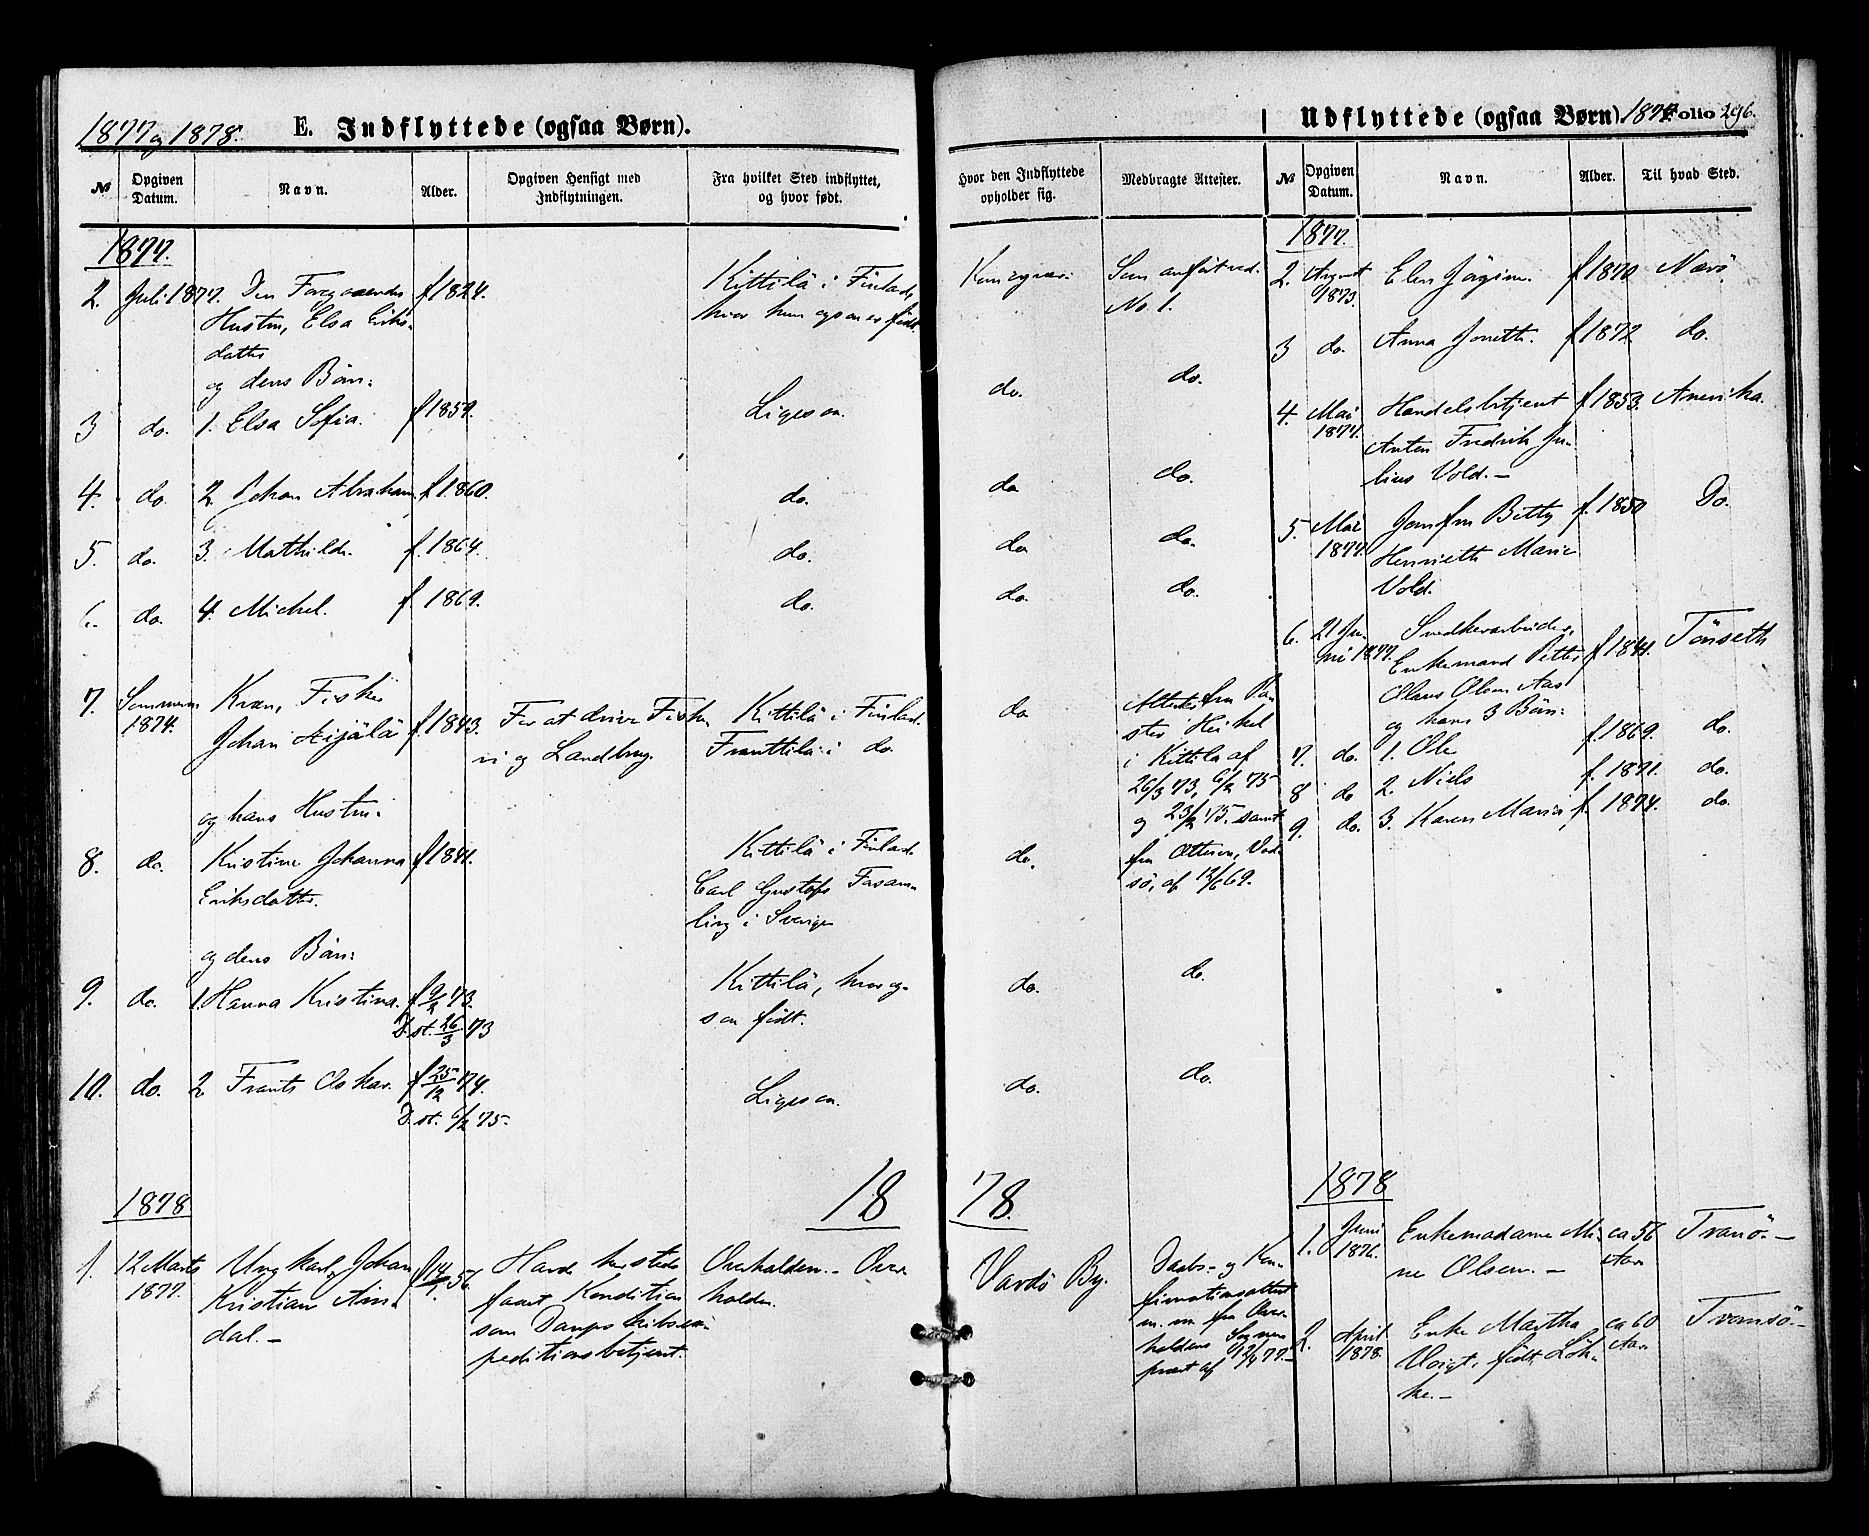 1877 og 1878.
E. Indflyttede (ogsaa Børn).
№
Opgiven Datum.
Navn.
Alder.
Opgiven Hensigt med Indflytningen.
Fra hvilket Sted indflyttet, og hvor født.
Hvor den Indflyttede opholder sig.
Medbragte Attester.
1877.
2. Juli 1877. Den Foregaaendes f 1824. Kittilä i Finland,
Hustru, Elsa Eriks- hvor hun ogsaa er født
datter
og deres Börn:
Som anført ved
No 1.
3 do. 1. Elsa Sofia. f 1859. Ligesaa. do. do.
4. do. 2. Johan Abraham, f 1860. do. do. do.
5. do. 3. Mathilde. f. 1864. do. do. do.
6. do. 4. Michel. f. 1869. do. do. do.
7. Sommeren Kvæn, Fisker
1874. Johan f. 1843. For at drive Fiske- Kittilä i Finland.
ri og Landbrug. i do.
do
Attester fra Pa-
stor Heikel
i Kittila af
26/3 73, 6/2 75
og 23/2 75. samt
fra Ottesen, Vad-
sö, af 12/6 69.
og hans Hustru:
8. do. Kristine Johanna f 1841. Kittilä i Finland
Eriksdatter. Carl Gustafs
ling i Sverige
do.
og deres Börn:
9. do. 1. Hanna Kristina. f 9/2 73. Kittilä, hvor og- do. do.
D. st. 26/3 73 saa født.
10. do. 2 Frants Oskar. f 25/12 74. Ligesaa. do. do.
D. st. 6/2 75.
1878
18 78.
1. 12 Marts Ungkarl, Johan f 14/7 56. Havde hersteds Overhalden. - Over- Vardö By.
1877. Kristian Am- faaet Kondition halden.
dal. - som Dampskibsex-
peditionsbetjent.
Daabs- og Kon-
firmationsattest
m. m. fra Over-
haldens Sogne-
præst af 12/4 77. -
Udflyttede (ogsaa Børn) 1877 Folio 296.
№
Opgiven Datum.
Navn.
Alder.
Til hvad Sted.
1877.
2. August Elen Jörgine. f 1870 Nærö.
1873.
3 do. Anna Jonette. f 1872 do.
4. Mai Handelsbetjent f 1853. Amerika.
1877. Anton Fredrik Ju-
lius Vold. -
5. Mai Jomfru Betty f. 1850 Do.
1877. Henriette Marie
Vold.
6. 21 Ju- Snedkerarbeider, Tönseth
ni 1877. Enkemand Petter f 1841.
Olaus Olsen Aas
og hans 3 Børn:
7. do. 1. Ole f. 1869. do.
8 do 2. Niels f. 1871. do.
9. do. 3. Karen Maria f. 1874. do.
1878
1. Juni Enkemadame Mi- ca 56 Tranö. -
1876. ne Olsen. - Aar
2. April Enke Martha ca 60 Tromsö. -
1878. Voigt, født Lök- Aar
ke. -